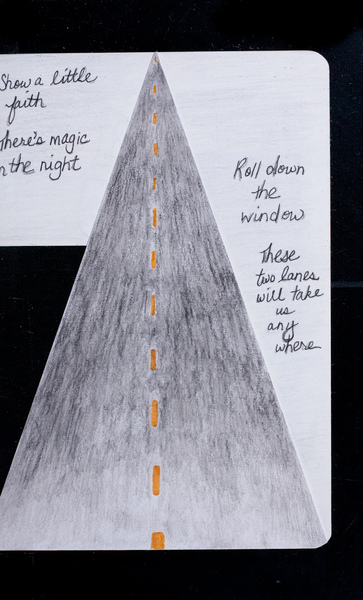 Show a little
faith
There's magic
in the night
Roll down
the
window
These
two lanes
will take
us
any
where